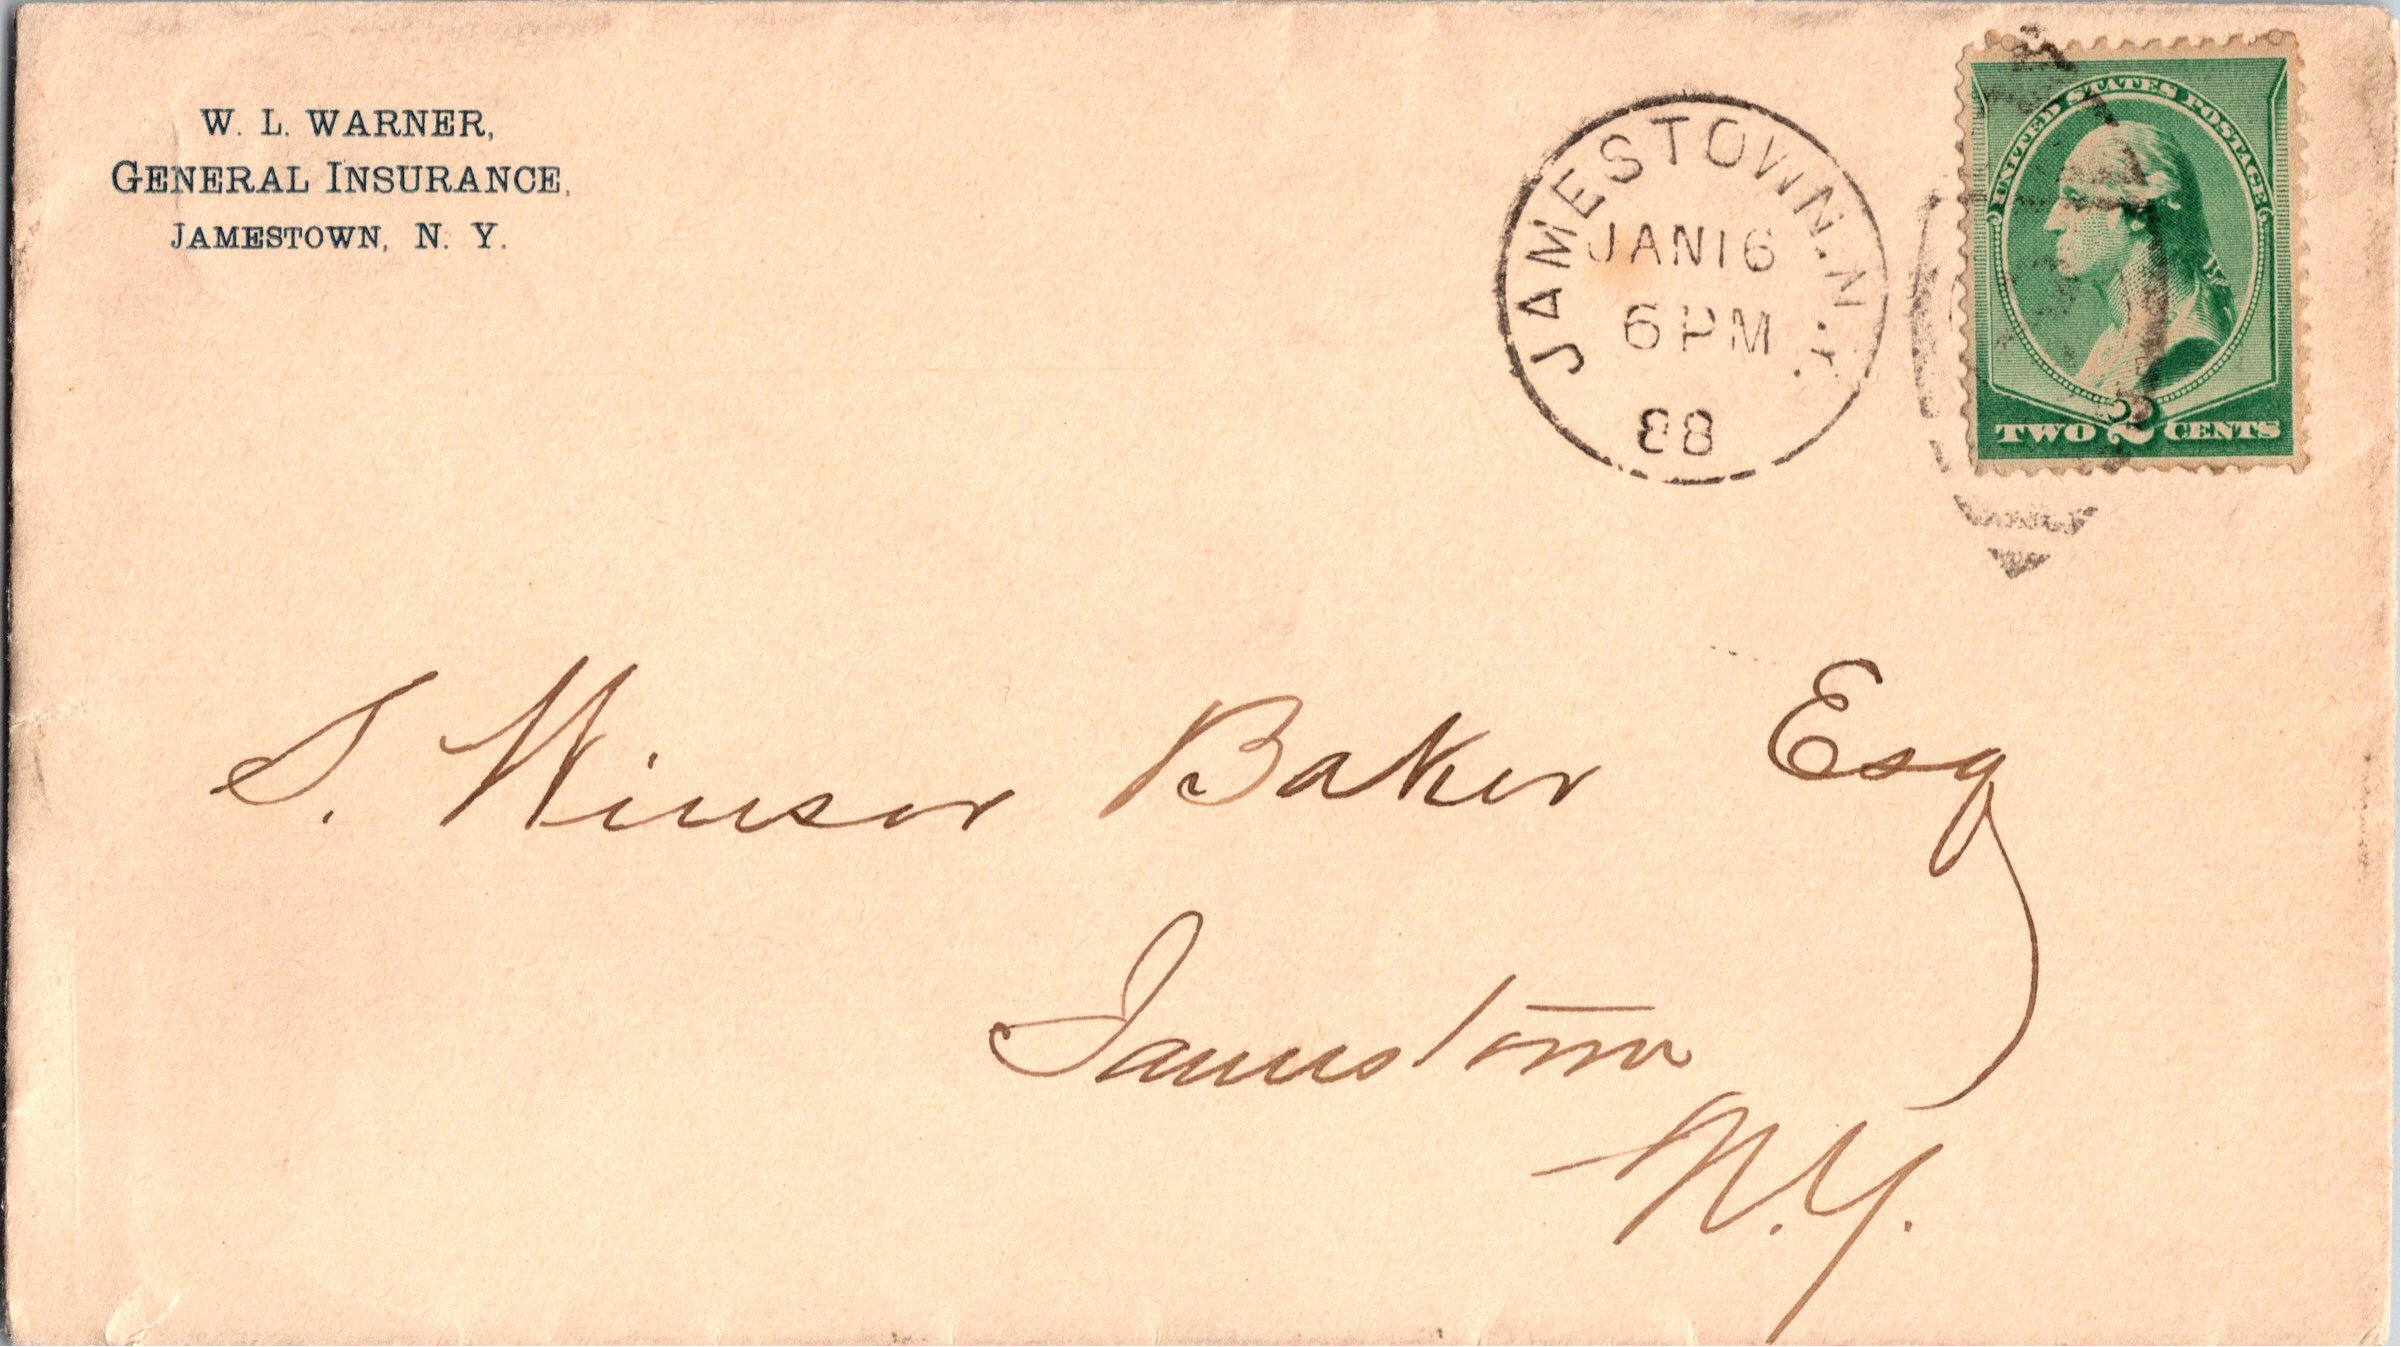 W. L. WARNER,
GENERAL INSURANCE,
JAMESTOWN, N. Y.
JAMESTOWN. N. Y.
JAN 16
6 PM
88
UNITED STATES POSTAGE
TWO 2 CENTS
S. Winsor Baker Esq
Jamestown
N.Y.